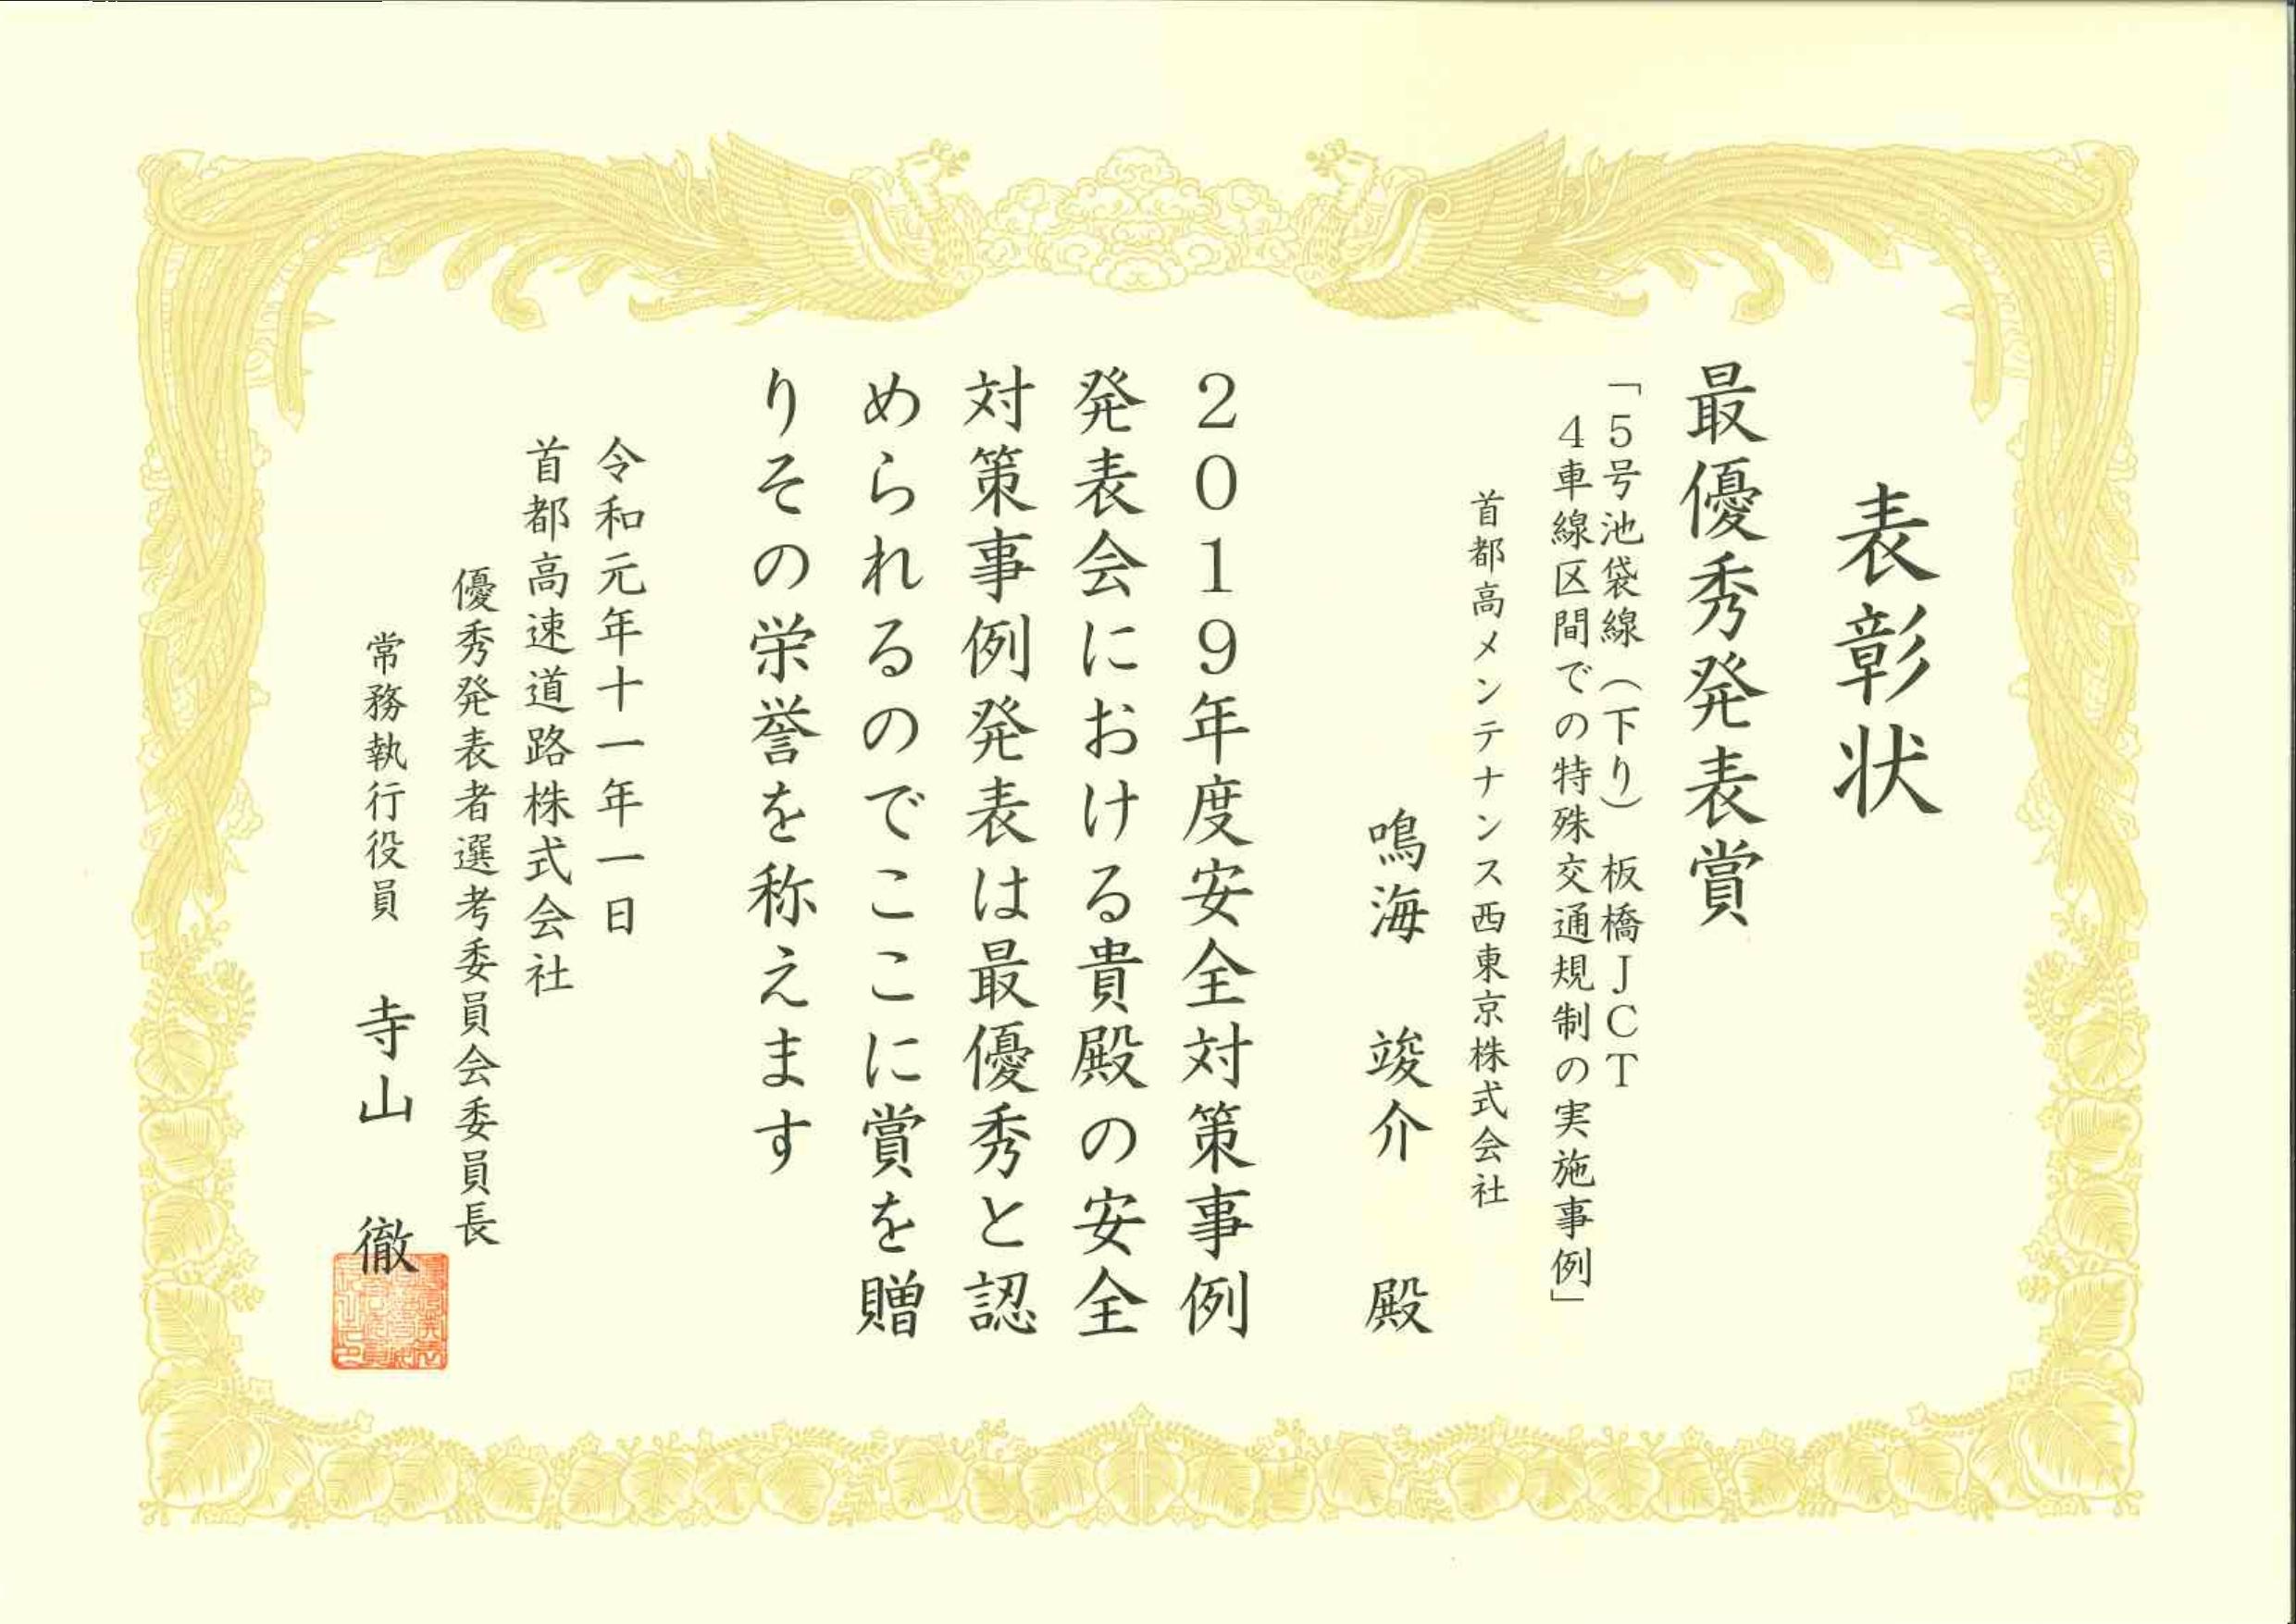 表彰状
最優秀発表賞
「５号池袋線（下り）板橋ＪＣＴ
４車線区間での特殊交通規制の実施事例」
首都高メンテナンス西東京株式会社
鳴海　竣介　殿
２０１９年度安全対策事例
発表会における貴殿の安全
対策事例発表は最優秀と認
められるのでここに賞を贈
りその栄誉を称えます
令和元年十一年一日
首都高速道路株式会社
優秀発表者選考委員会委員長
常務執行役員　寺山　徹